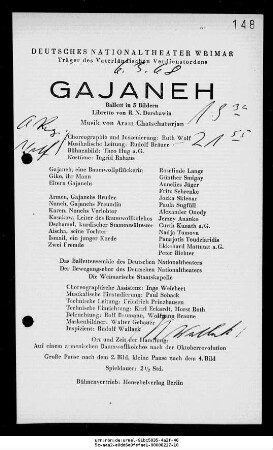 148
DEUTSCHES NATIONALTHEATER WEIMAR
Träger des Vaterländischen Verdienstordens
6. 3. 68
GAJANEH
Ballett in 5 Bildern
Libretto von K. N. Dershawin
Musik von Aram Chatschaturjan
19 30
21 55
Choreographie und Inszenierung: Ruth Wolf
Musikalische Leitung: Rudolf Bräuer
Bühnenbild: Theo Hug a.G.
Kostüme: Ingrid Rahaus
Gajaneh, eine Baumwollpflückerin Roselinde Lange
Giko, ihr Mann Günther Smigay
Eltern Gajanehs Annelies Jäger
Fritz Schrenke
Armen, Gajanehs Bruder Jozka Sklenar
Nuneh, Gajanehs Freundin Paula Sagfüll
Karen, Nunehs Verlobter Alexander Onody
Kasakow, Leiter des Baumwollkolchos Jersey Asmins
Aischa, seine Tochter Nadja Toneva
Ismail, ein junger Kurde
Zwei Fremde Ekkehard
Peter Richter
Das Ballettensemble des Deutschen Nationaltheaters
Der Bewegungschor des Deutschen Nationaltheaters
Die Weimarische Staatskapelle
Choreographische Assistenz: Inge Weichert
Musikalische Einstudierung: Paul Soback
Technische Leitung: Friedrich Prischausen
Technische Einrichtung: Karl Eckardt, Horst Roth
Beleuchtung: Rolf Baumann, Wolfgang Braune
Maskenbildner: Walter Gebauer
Inspizient: Rudolf Wallack
Ort und Zeit der Handlung:
Auf einem armenischen Baumwollkolchos nach der Oktoberrevolution
Große Pause nach dem 2. Bild, kleine Pause nach dem 4. Bild
Spieldauer: 2½ Std.
Bühnenvertrieb: Henschelverlag Berlin